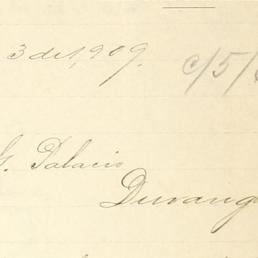 3 de 1,909.
c/5/
G. Palacio
Durang